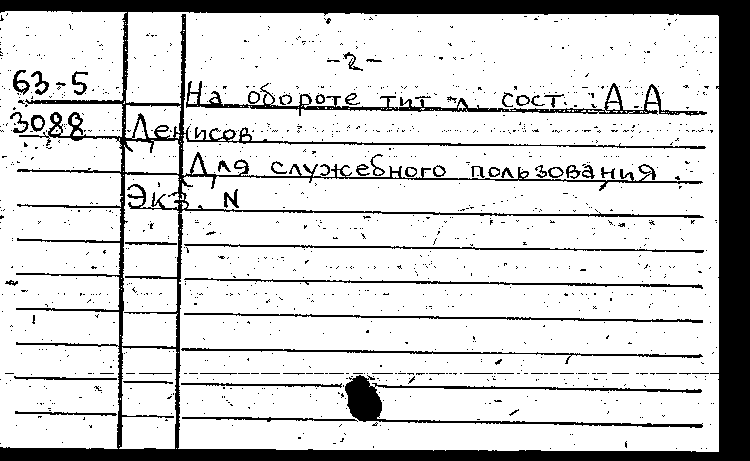 -2-
63-5 На обороте тит. л. сост.: А.А
3088 Денисов.
Для служебного пользования.
Экз. N